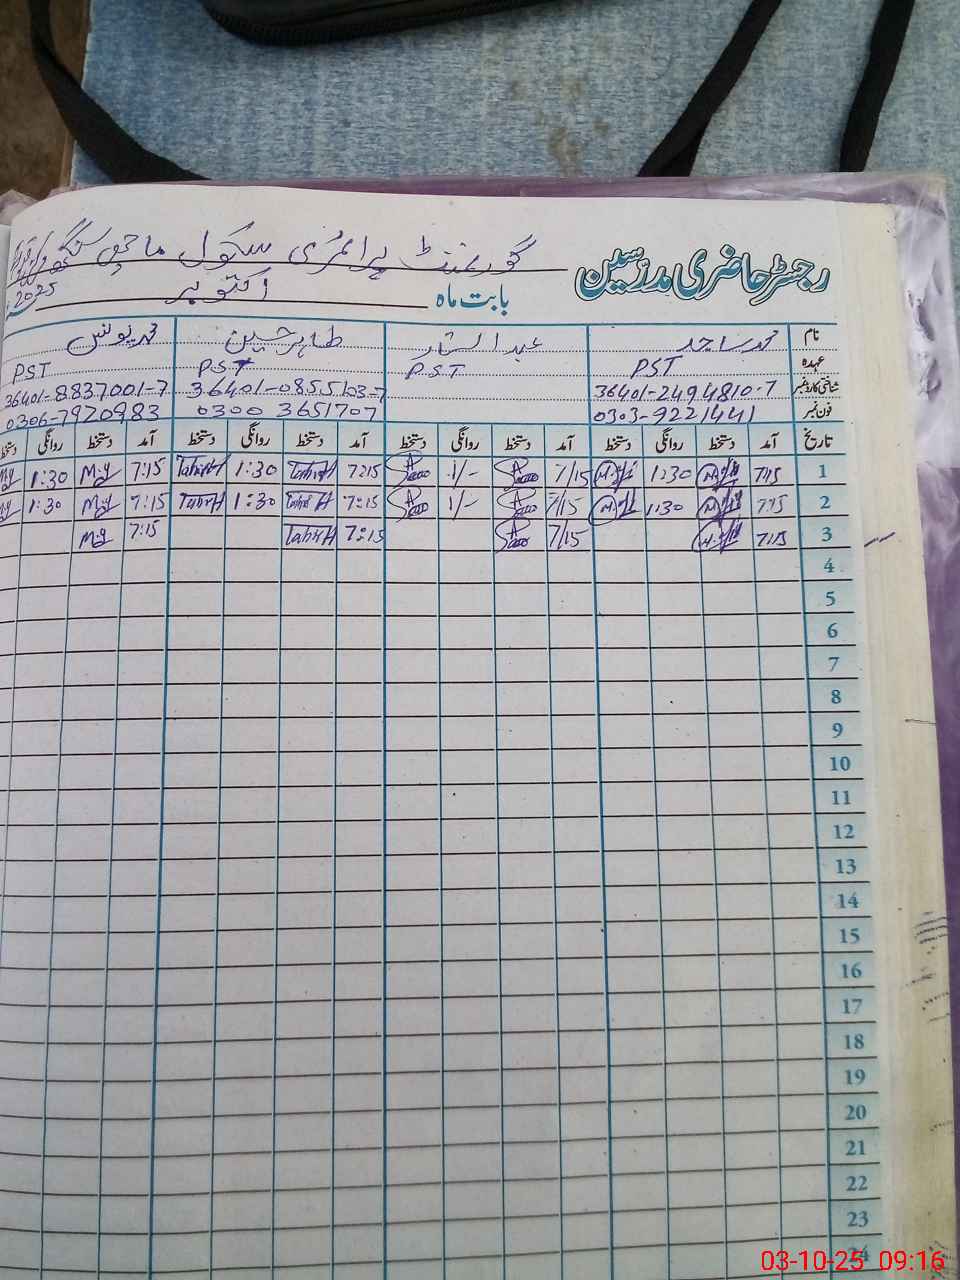 رجسٹر حاضری مدرسین گورنمنٹ پرائمری سکول ماچھی سنگھ
بابت ماہ اکتوبر 2025
نام محمد ساجد عبدالستار طاہر حسین محمد یونس
عہدہ PST PST PST PST
شناختی کارڈ نمبر 36401-2494810-7 36401-0855103-7 36401-8837001-7
فون نمبر 0303-9221441 0300 3651707 0306-7920983
تاریخ آمد دستخط روانگی دستخط آمد دستخط روانگی دستخط آمد دستخط روانگی دستخط آمد دستخط روانگی دستخط
1 7:15 1:30 7/15 1/- 7:15 TahirH 1:30 TahirH 7:15 M.y 1:30 M.y
2 7:15 1:30 7/15 1/- 7:15 TahirH 1:30 TahirH 7:15 M.y 1:30 M.y
3 7:15 7/15 7:15 TahirH 7:15 M.y
4
5
6
7
8
9
10
11
12
13
14
15
16
17
18
19
20
21
22
23
24
03-10-25 09:16